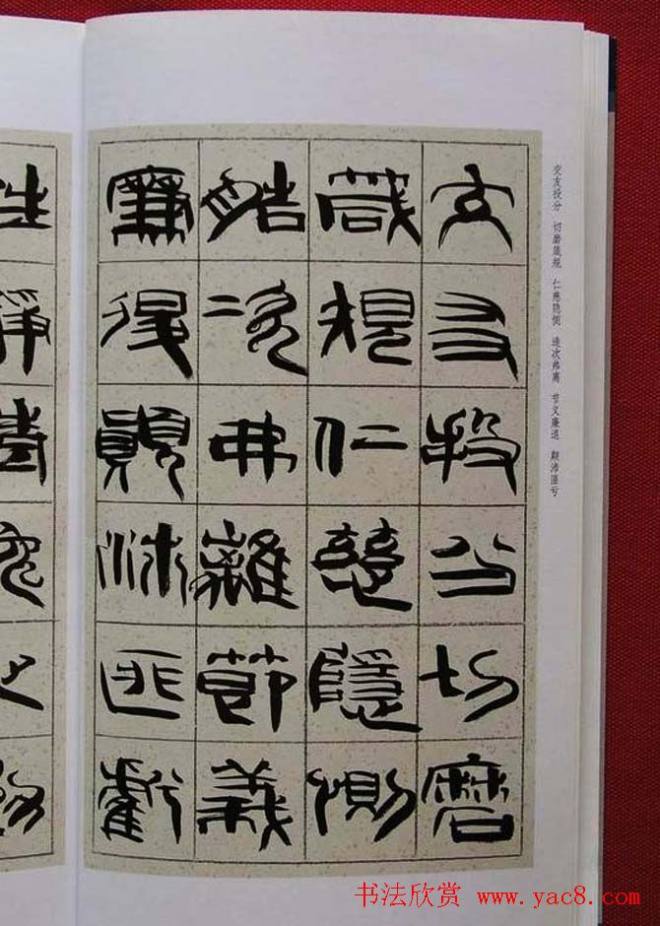 交友投分 切磨箴规 仁慈隐恻 造次弗离 节义廉退 颠沛匪亏
交友投分切磨
箴規仁慈隱惻
造次弗離節義
廉退顛沛匪虧
书法欣赏 www.yac8.com